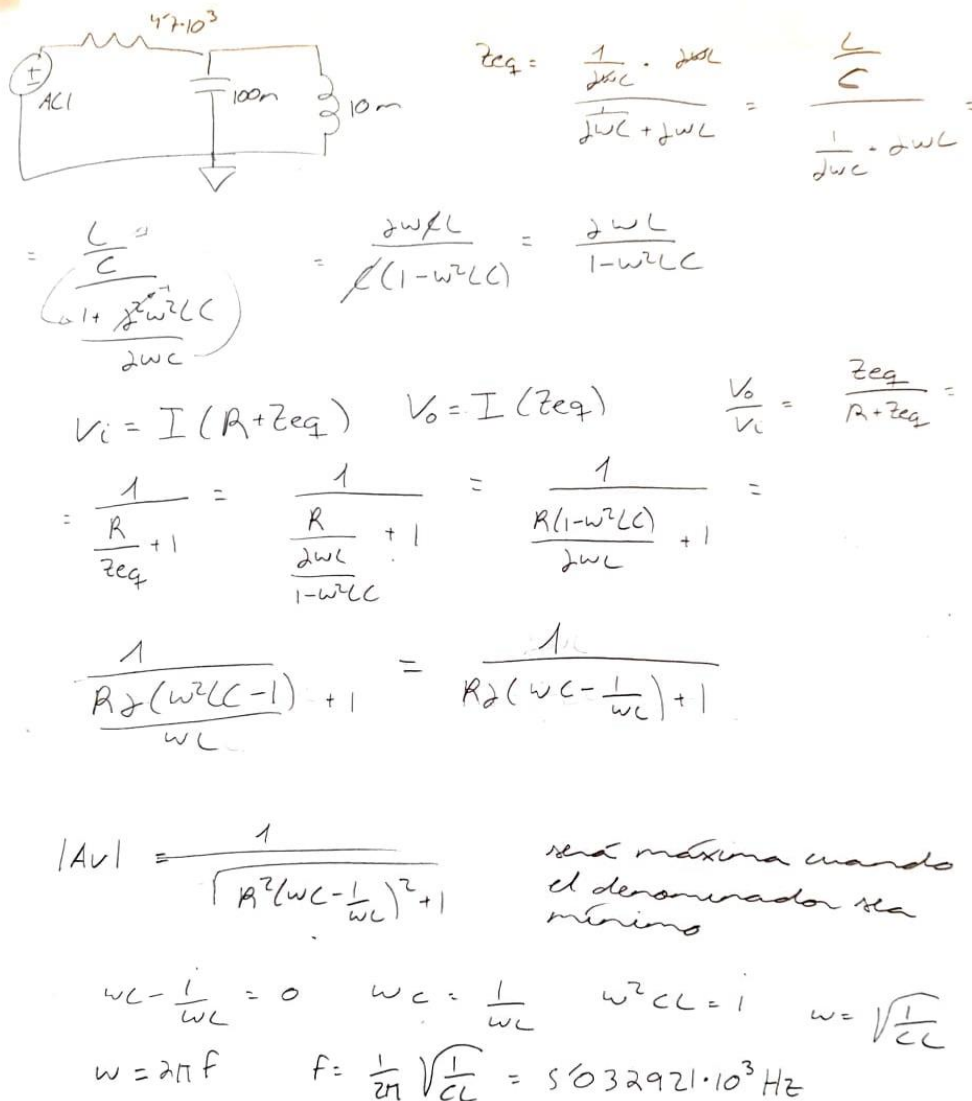 4'7·10³
± AC1 100n 10m
Zeq = (1/(jωC) · jωL)/(1/(jωC) + jωL) = (L/C)/(1/(jωC) · jωL) =
= (L/C)/((1 + j²ω²LC)/(jωC)) -1 = (jωCL)/(C(1-ω²LC)) = jωL/(1-ω²LC)
Vi = I(R+Zeq) Vo = I(Zeq) Vo/Vi = Zeq/(R+Zeq) =
= 1/(R/Zeq + 1) = 1/(R/(jωL/(1-ω²LC)) + 1) = 1/(R(1-ω²LC)/(jωL) + 1) =
1/(Rj(ω²LC-1)/(ωL) + 1) = 1/(Rj(ωC - 1/(ωL)) + 1)
|Av| = 1/√(R²(ωC - 1/(ωL))² + 1) será máxima cuando
el denominador sea
mínimo
ωC - 1/(ωL) = 0 ωC = 1/(ωL) ω²CL = 1 ω = √(1/(CL))
ω = 2πf f = 1/(2π) √(1/(CL)) = 5'032921·10³ Hz